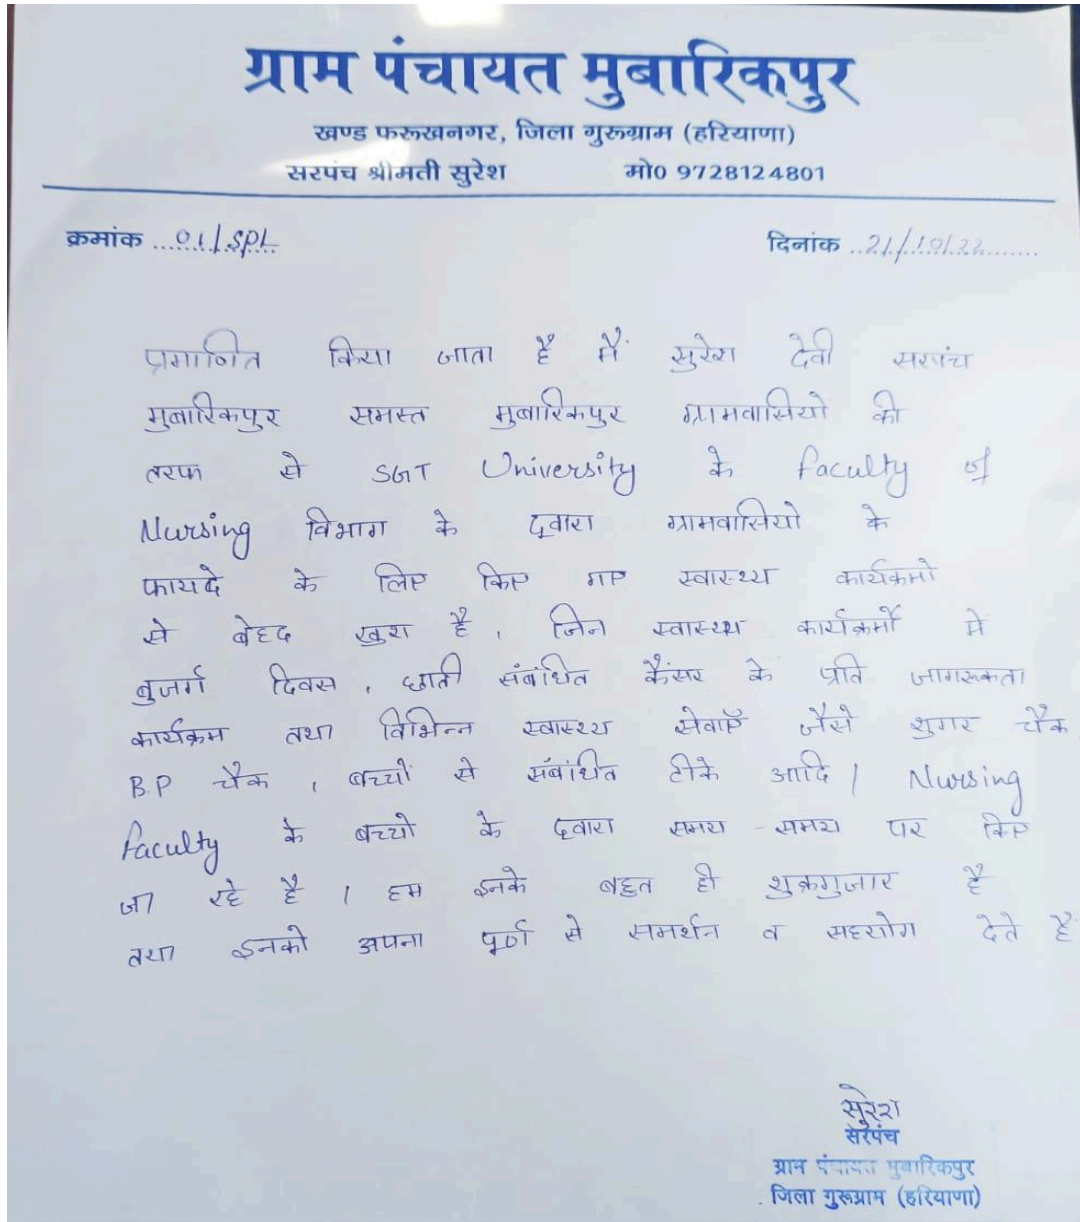 ग्राम पंचायत मुबारिकपुर
खण्ड फरूखनगर, जिला गुरूग्राम (हरियाणा)
सरपंच श्रीमती सुरेश मो0 9728124801
क्रमांक ...01/SPL... दिनांक ..21/10/22........
प्रमाणित किया जाता है मैं सुरेश देवी सरपंच
मुबारिकपुर समस्त मुबारिकपुर ग्रामवासियो की
तरफ से SGT University के Faculty of
Nursing विभाग के द्वारा ग्रामवासियो के
फायदे के लिए किए गए स्वास्थ्य कार्यक्रमो
से बेहद खुश है , जिन स्वास्थ्य कार्यक्रमों मे
बुजर्ग दिवस , छाती संबंधित कैंसर के प्रति जागरूकता
कार्यक्रम तथा विभिन्न स्वास्थ्य सेवाएँ जैसे शुगर चैक
B.P चैक , बच्चों से संबंधित टीके आदि | Nursing
Faculty के बच्चो के द्वारा समय - समय पर किए
जा रहे है | हम इनके बहुत ही शुक्रगुजार है
तथा इनको अपना पूर्ण से समर्थन व सहयोग देते है
सुरेश
सरपंच
ग्राम पंचायत मुबारिकपुर
जिला गुरूग्राम (हरियाणा)